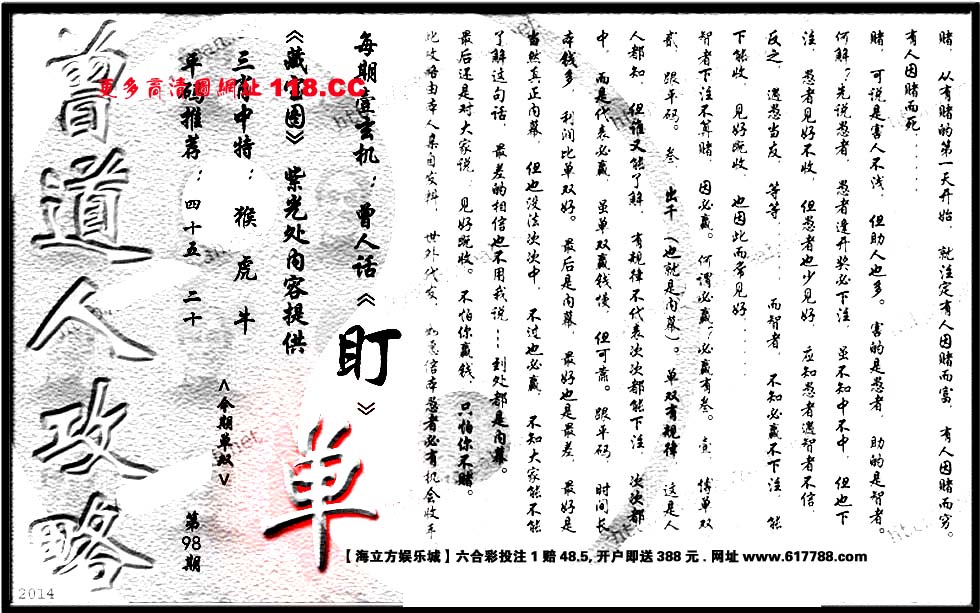 赌，从有赌的第一天开始，就注定有人因赌而富，有人因赌而穷。
有人因赌而死……
赌，可说是害人不浅，但助人也多。害的是愚者，助的是智者。
何解？先说愚者，愚者逢开奖必下注，虽不知中不中，但也下
注，愚者见好不收，但愚者也少见好，应知愚者遇智者不信，
反之，遇愚当友，等等……而智者，不知必赢不下注，能
下能收，见好既收，也因此而常见好……
智者下注不算赌，因必赢。何谓必赢？必赢有叁。壹，博单双
贰，跟平码。叁，出千（也就是内幕）。单双有规律，这是人
人都知，但谁又能了解，有规律不代表次次都能下注，次次都
中，而是代表必赢，虽单双赢钱慢，但可靠。跟平码，时间长
本钱多，利润比单双好。最后是内幕，最好也是最差，最好是
当然真正内幕，但也没法次次中，不过也必赢，不知大家能不能
了解这句话，最差的相信也不用我说……到处都是内幕。
最后还是对大家说，见好既收。不怕你赢钱，只怕你不赌。
此攻略由本人亲自发辑，世外代发，如意信本愚者必有机会收手
每期壹玄机：曾人话《盯》
《藏宝图》紫光处内容提供
三肖中特：猴 虎 牛
单码推荐：四十五 二十
更多高清图网址 118.CC
<今期单双>
单
第98期
曾道人攻略
【海立方娱乐城】六合彩投注1赔48.5, 开户即送388元 . 网址 www.617788.com
2014